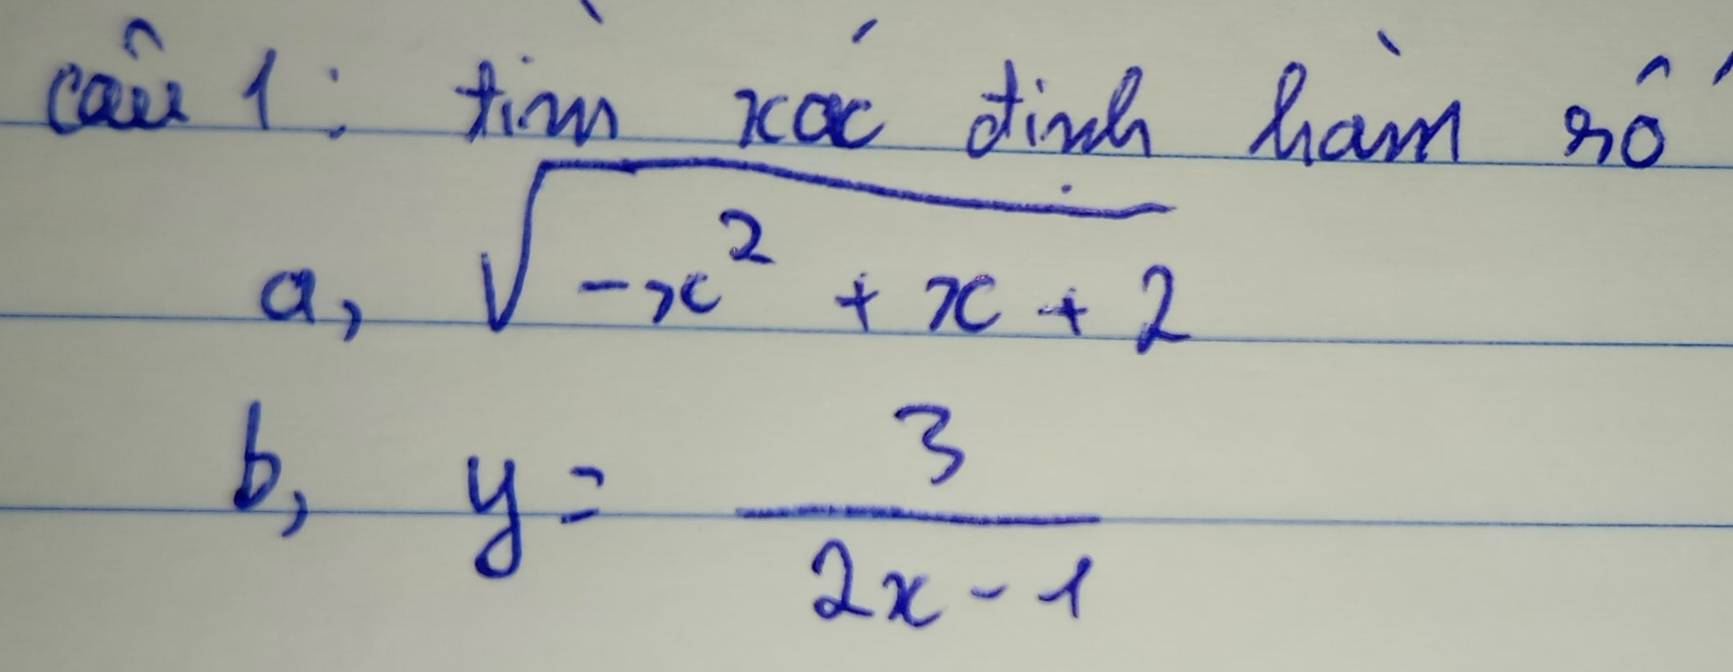 câu 1: tìm xác định hàm số
a, √(-x² + x + 2)
b, y = 3/(2x - 1)